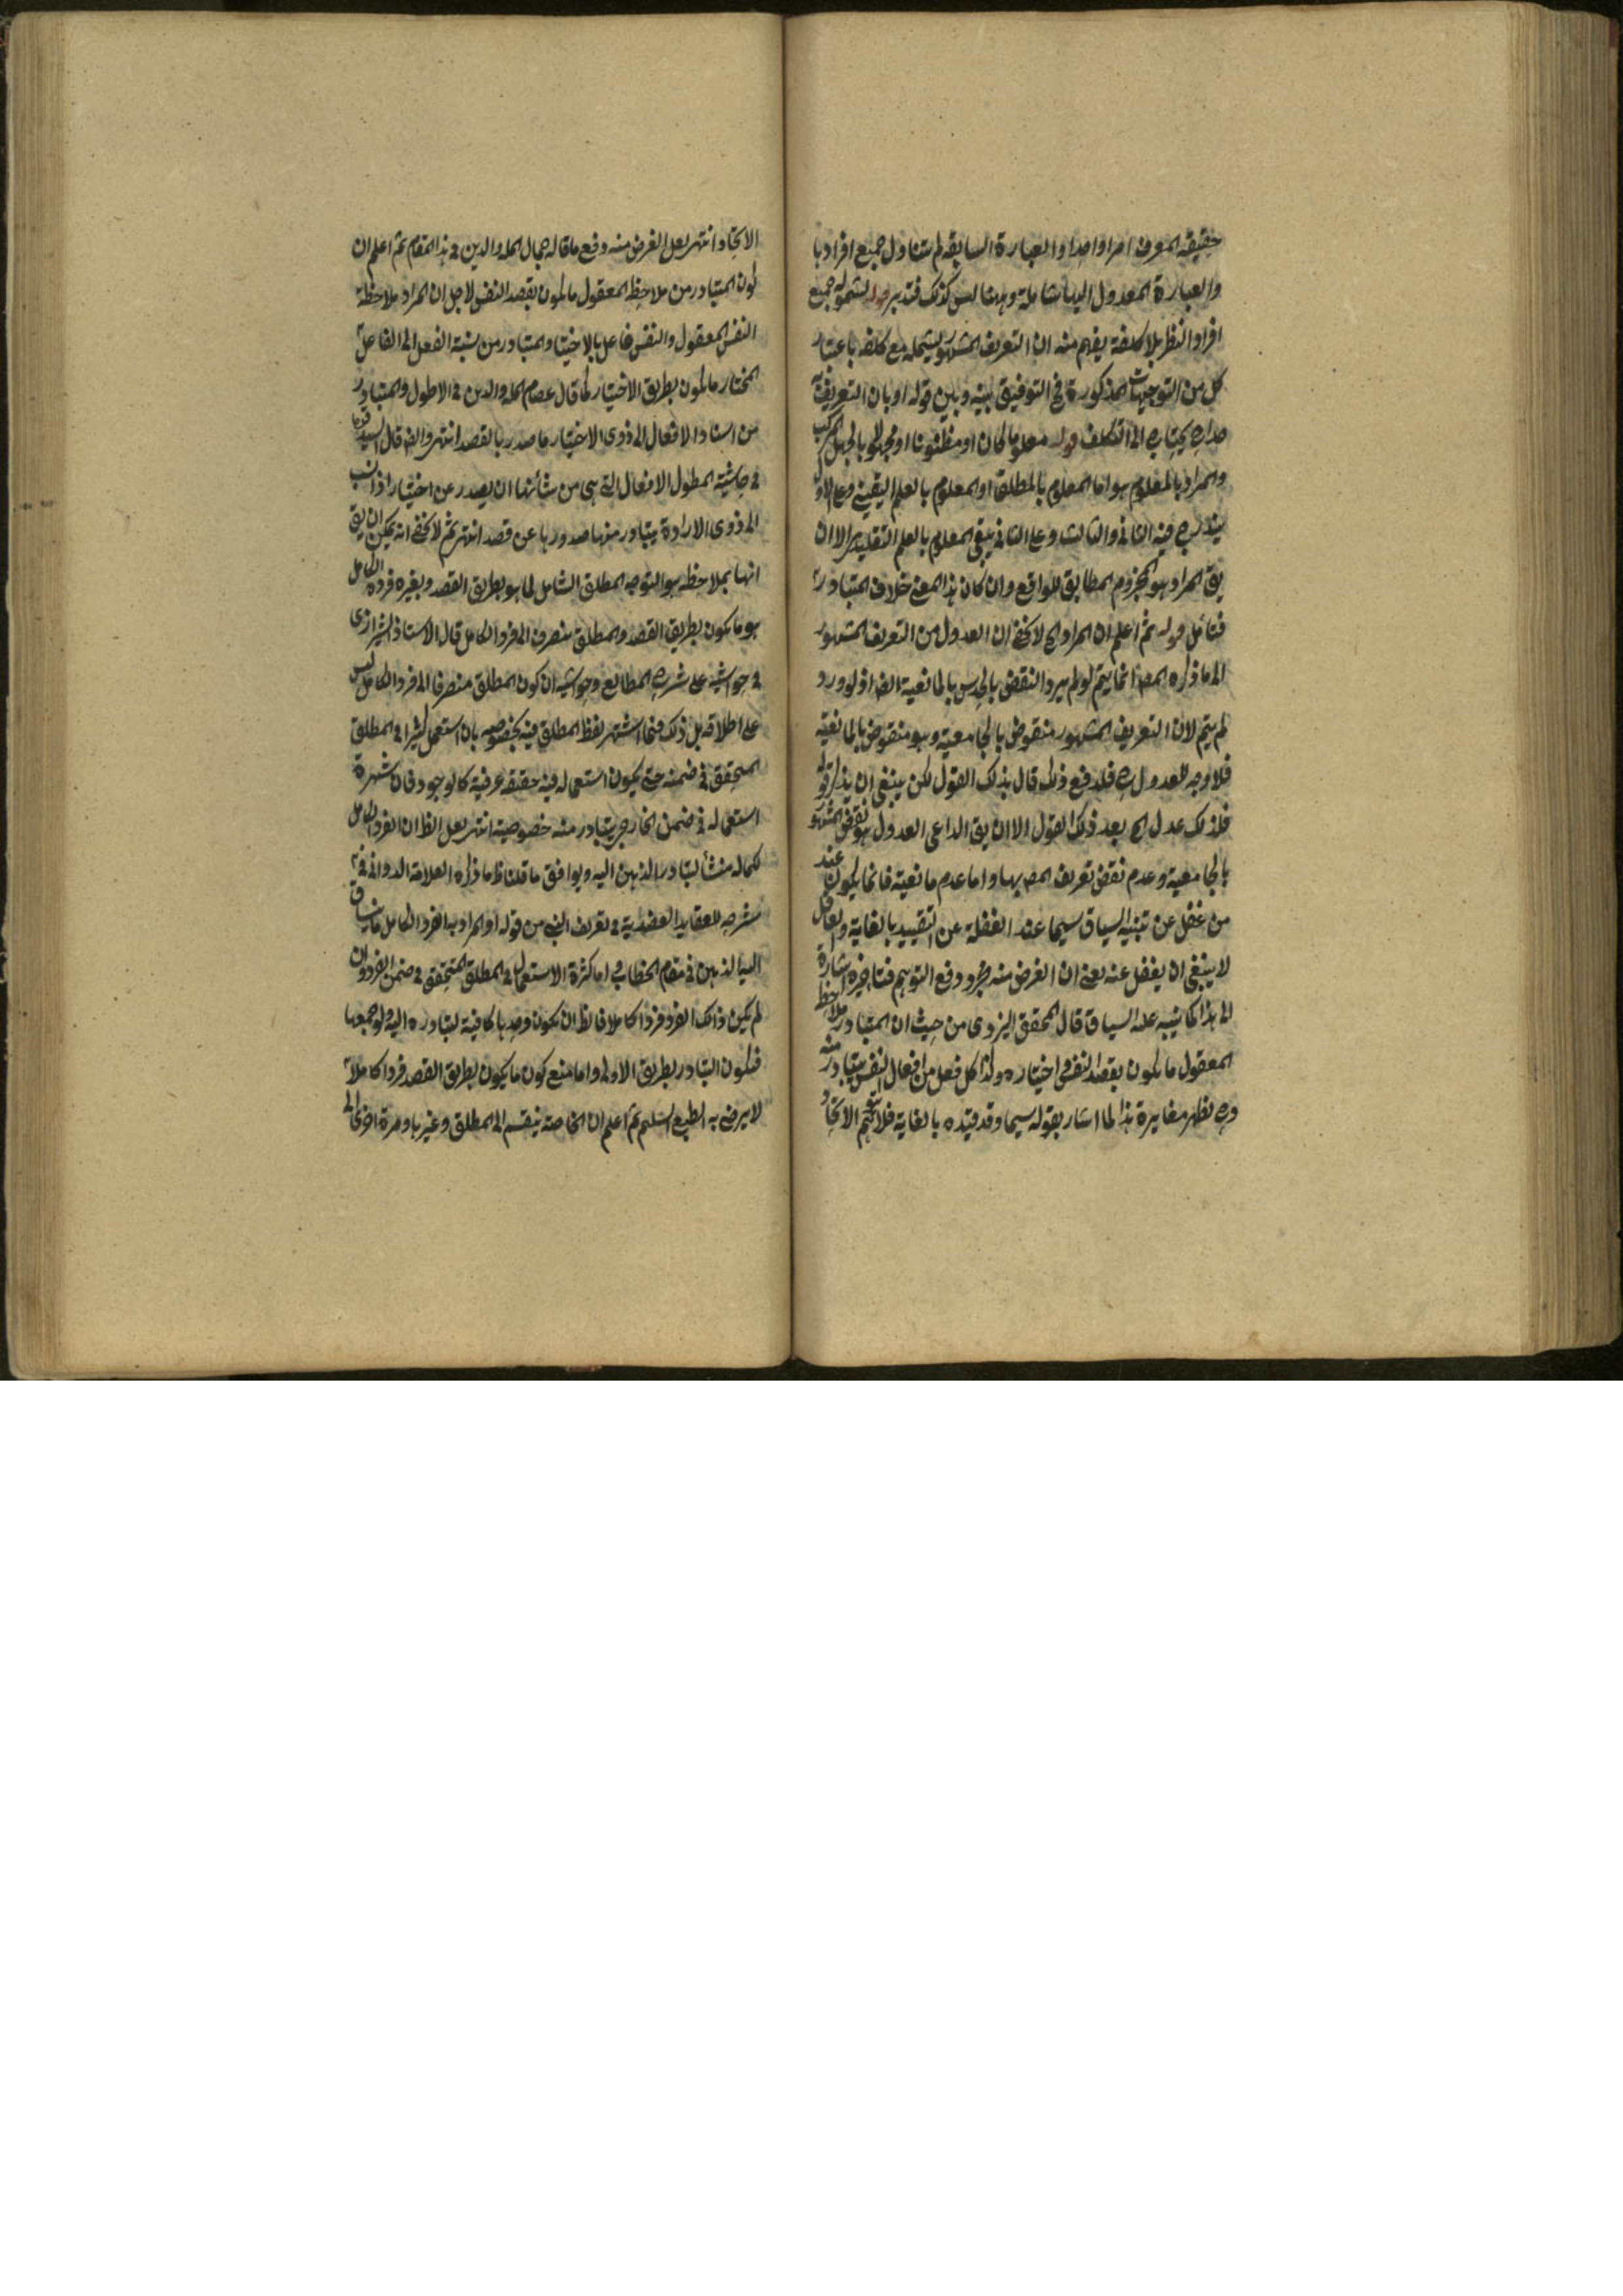 حقيقة المعرف امرا واحدا والعبارة السابقة لم تتناول جميع افرادها
والعبارة المعدول اليها شاملة وههنا ليس كذلك فتدبر قوله لشموله جميع
افراد النظر بلا كلفة يفهم منه ان التعريف المشهور يشمله مع كلفة باعتبار
كل من التوجيهات المذكورة في التوفيق بينه وبين قوله او بان التعريف به
يحتاج الى التكلف قوله معلوما كان او مظنونا او مجهولا بالجهل المركب
والمراد بالمعلوم هو اما المعلوم بالمطلق او المعلوم بالعلم اليقيني وعلى الاول
يندرج فيه الثاني والثالث وعلى الثاني يبقى المعلوم بالعلم التقليدي الا ان
يق المراد هو المجزوم المطابق للواقع وان كان هذا المعنى خلاف المتبادر
فتأمل قوله ثم اعلم ان المراد الخ لا يخفى ان العدول من التعريف المشهور
الى ما ذكره المص انما يتم لو لم يرد النقض بالحدس بالمانعية ايضا اذ لو ورد
لم يتم لان التعريف المشهور منقوض بالجامعية وهو منقوض بالمانعية
فلا وجه للعدول ح فلدفع ذلك قال بذلك القول لكن ينبغي ان يذكر قوله
فلذلك عدل الخ بعد ذلك القول الا ان يق الداعي العدول هو نقض المشهور
بالجامعية وعدم نقض تعريف المص بها واما عدم مانعيته فانما يكون عند
من غفل عن تنبيه السياق سيما عند الغفلة عن التقييد بالغاية والعاقل
لا ينبغي ان يغفل عنه يعني ان الغرض منه مجرد دفع التوهم فتاخيره اشارة
الى هذا كما نبيه عليه السياق قال المحقق اليزدي من حيث ان المتبادر من ملاحظة
المعقول ما يكون بقصد النفس اختياره وكذا كل فعل من افعال النفس يتبادر منه
وح يظهر مغايرة هذا لما اشار بقوله سيما وقد قيده بالغاية فلا يتوهم الاتحاد
الاتحاد انتهى لعل الغرض منه دفع ما قاله جمال المله والدين في هذا المقام ثم اعلم ان
كون المتبادر من ملاحظة المعقول ما يكون بقصد النفس لاجل ان المراد ملاحظة
النفس المعقول والنفس فاعل بالاختيار والمتبادر من نسبة الفعل الى الفاعل
المختار ما يكون بطريق الاختيار كما قال عصام المله والدين في الاطول والمتبادر
من اسناد الافعال الى ذوي الاختيار ما صدر بالقصد انتهى وايضا قال السيد قدس
في حاشية المطول الافعال التي هي من شأنها ان يصدر عن اختيار اذا نسب
الى ذوي الارادة يتبادر منها صدورها عن قصد انتهى ثم لا يخفى انه يمكن ان يق
انها بملاحظة هو التوجه المطلق الشامل لما هو بطريق القصد وبغيره فرده الكامل
هو ما يكون بطريق القصد والمطلق ينصرف الى الفرد الكامل قال الاستاذ الشيرازي
في حواشيه على شرح المطالع وحواشيه ان كون المطلق منصرفا الى الفرد الكامل ليس
على اطلاقه بل ذلك فيما اشتهر لفظ المطلق فيه بخصوصه بان استعمل كثيرا في المطلق
المتحقق في ضمنه حتى يكون استعماله فيه حقيقة عرفية كالوجود فان شهرة
استعماله في ضمن الخارجي يتبادر منه خصوصيته انتهى لعل الظ ان الفرد الكامل
لكماله منشأ لتبادر الذهن اليه ويوافق ما قلنا ظ ما ذكره العلامة الدواني في
شرحه للعقايد العضدية في تعريف النبي من قوله او المراد به الفرد الكامل ما ينساق
اليه الذهن في مقام الخطاب اما كثرة الاستعمال في المطلق المتحقق في ضمن الفرد وان
لم يكن ذلك الفرد فردا كاملا فالظ ان تكون وحدها كافية لتبادره اليه ولو جمعها
فيكون التبادر بطريق الاولى واما منع كون ما يكون بطريق القصد فردا كاملا
لا يرضى به الطبع السليم ثم اعلم ان الخاصة ينقسم الى المطلق وغيرها ومرة اخرى الى